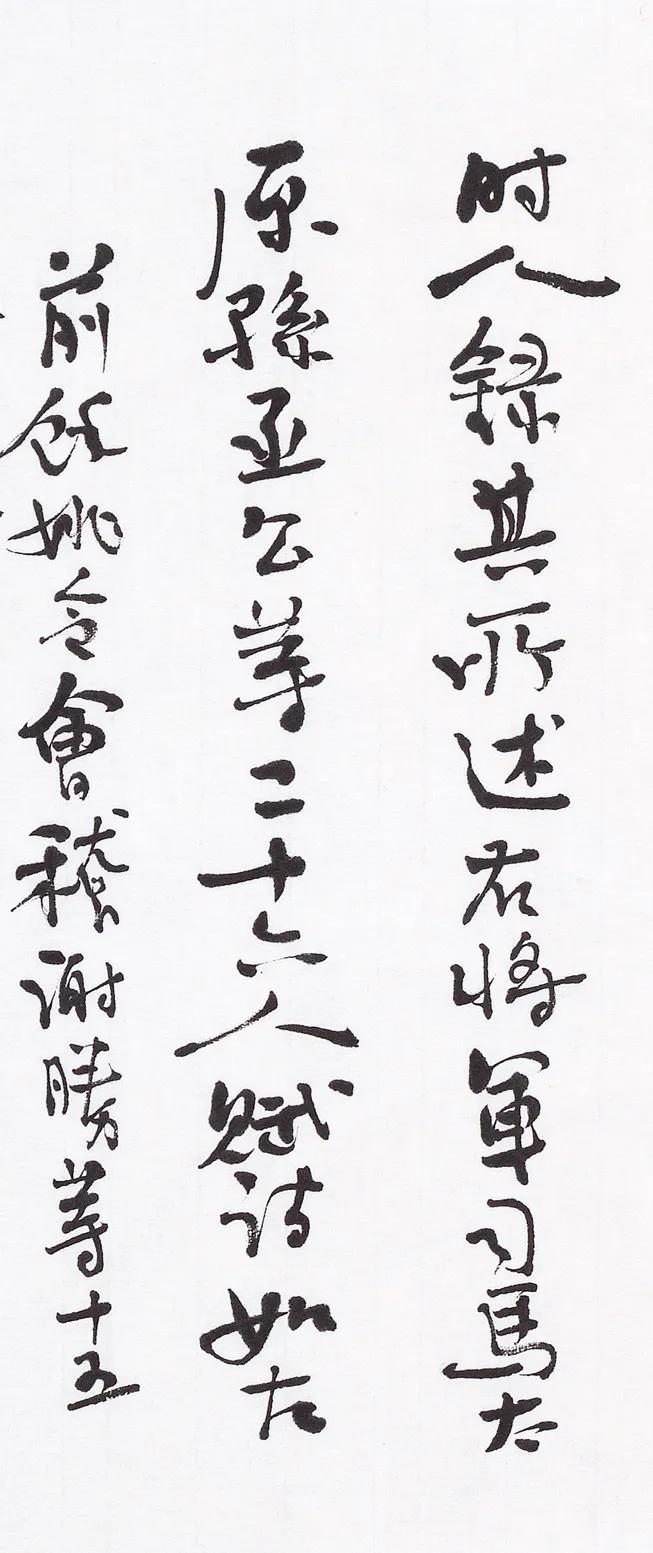 时人録其所述右将軍司馬太
原孫丞公等二十六人賦詩如左
前餘姚令會稽謝勝等十五